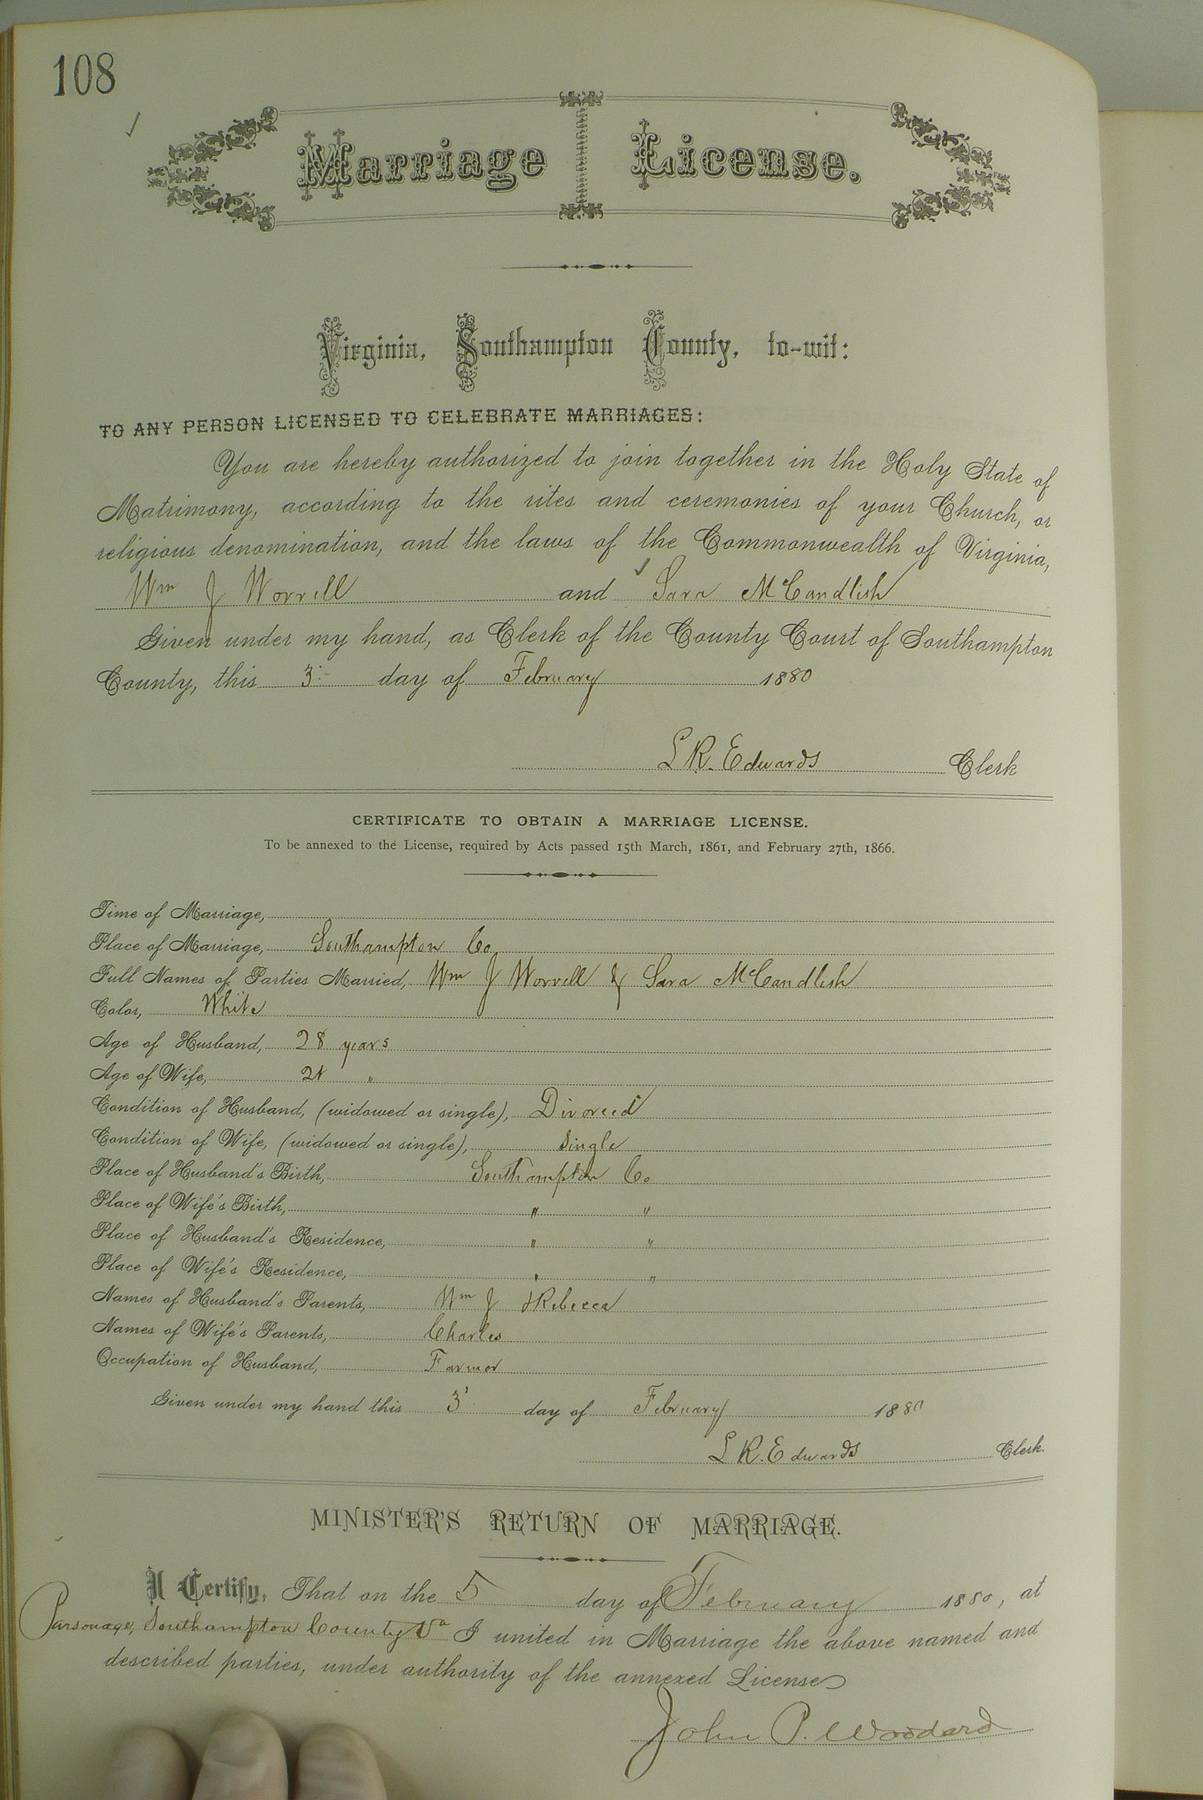 108
Marriage License.
Virginia, Southampton County, to-wit:
TO ANY PERSON LICENSED TO CELEBRATE MARRIAGES:
You are hereby authorized to join together in the Holy State of
Matrimony, according to the rites and ceremonies of your Church, or
religious denomination, and the laws of the Commonwealth of Virginia,
Wm J Worrell and Sara McCandlish
Given under my hand, as Clerk of the County Court of Southampton
County, this 3 day of February 1880
L R. Edwards Clerk
CERTIFICATE TO OBTAIN A MARRIAGE LICENSE.
To be annexed to the License, required by Acts passed 15th March, 1861, and February 27th, 1866.
Time of Marriage,
Place of Marriage, Southampton Co
Full Names of Parties Married, Wm J Worrell & Sara McCandlish
Color, White
Age of Husband, 28 years
Age of Wife, "
Condition of Husband, (widowed or single), Divorced
Condition of Wife, (widowed or single), Single
Place of Husband's Birth, Southampton Co
Place of Wife's Birth, " "
Place of Husband's Residence, " "
Place of Wife's Residence, " "
Names of Husband's Parents, Wm J & Rebecca
Names of Wife's Parents, Charles
Occupation of Husband, Farmer
Given under my hand this 3 day of February 1880
L R. Edwards Clerk.
MINISTER'S RETURN OF MARRIAGE.
I Certify, That on the 5 day of February 1880, at
Parsonage, Southampton County Va I united in Marriage the above named and
described parties, under authority of the annexed License
John P. Woodard